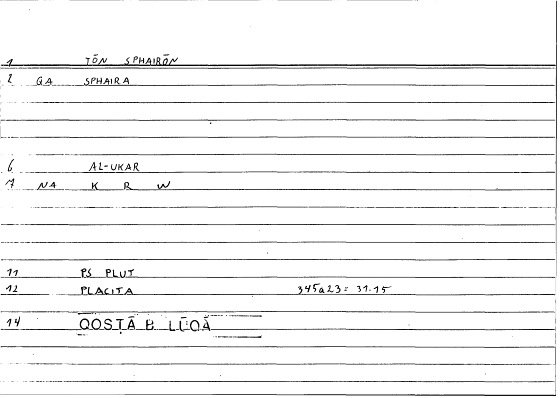 1 TŌN SPHAIRŌN
2 GA SPHAIRA
6 AL-UKAR
7 NA K R W
11 PS PLUT
12 PLACITA 345a23 = 31.15
14 QOSṬĀ B. LŪQĀ